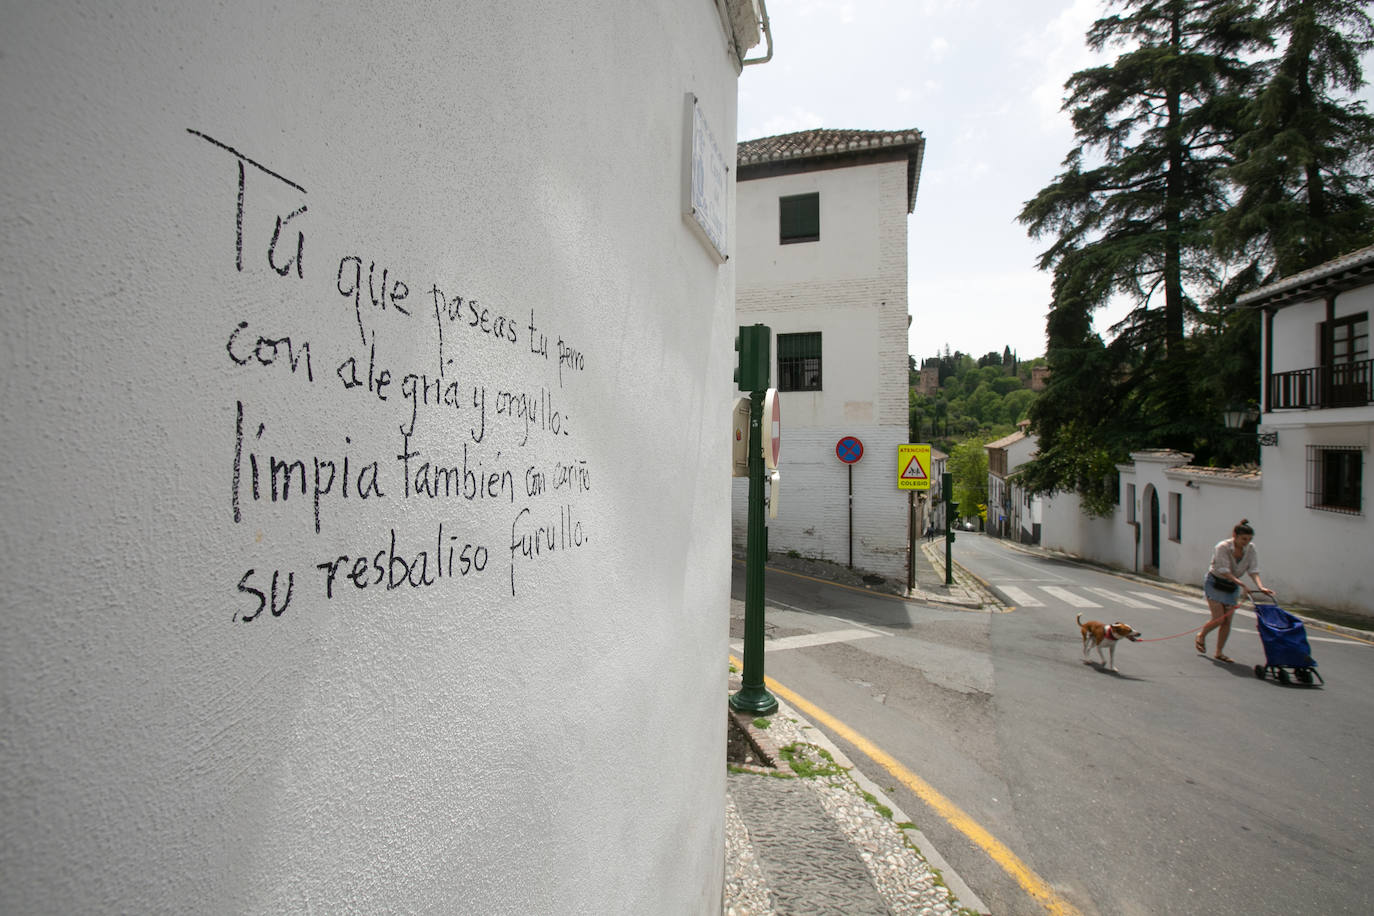 Tú que paseas tu perro
con alegría y orgullo:
limpia también con cariño
su resbaliso furullo.
ATENCIÓN
COLEGIO